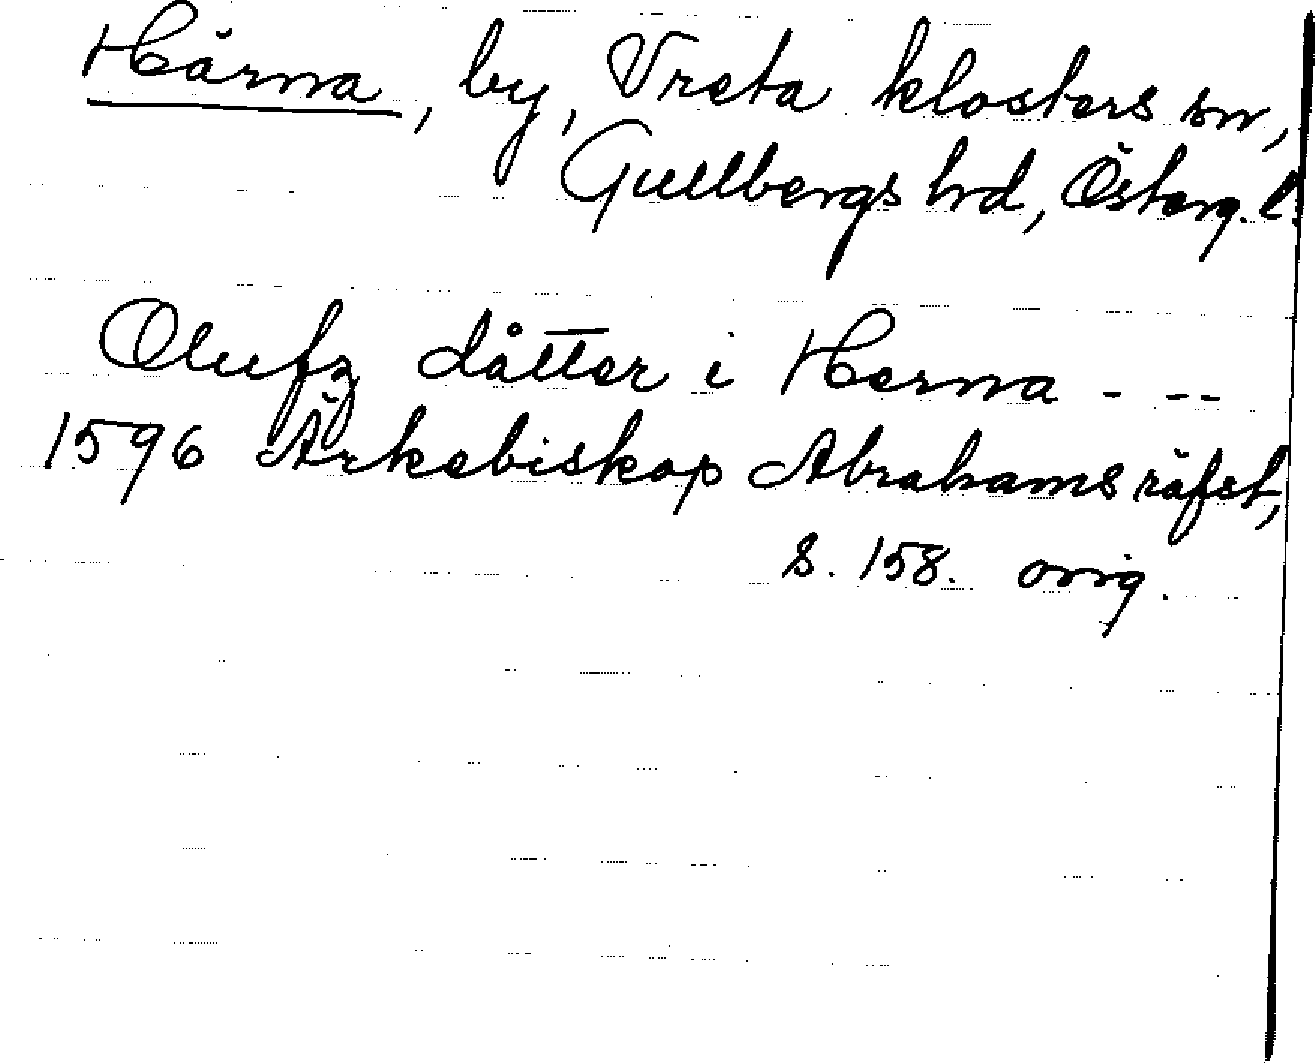 Härna, by, Vreta klosters sn,
Gullbergs hrd, Österg. l.
Olufz dåtter i Herna - --
1596 Ärkebiskop Abrahams räfst,
s. 158. orig.